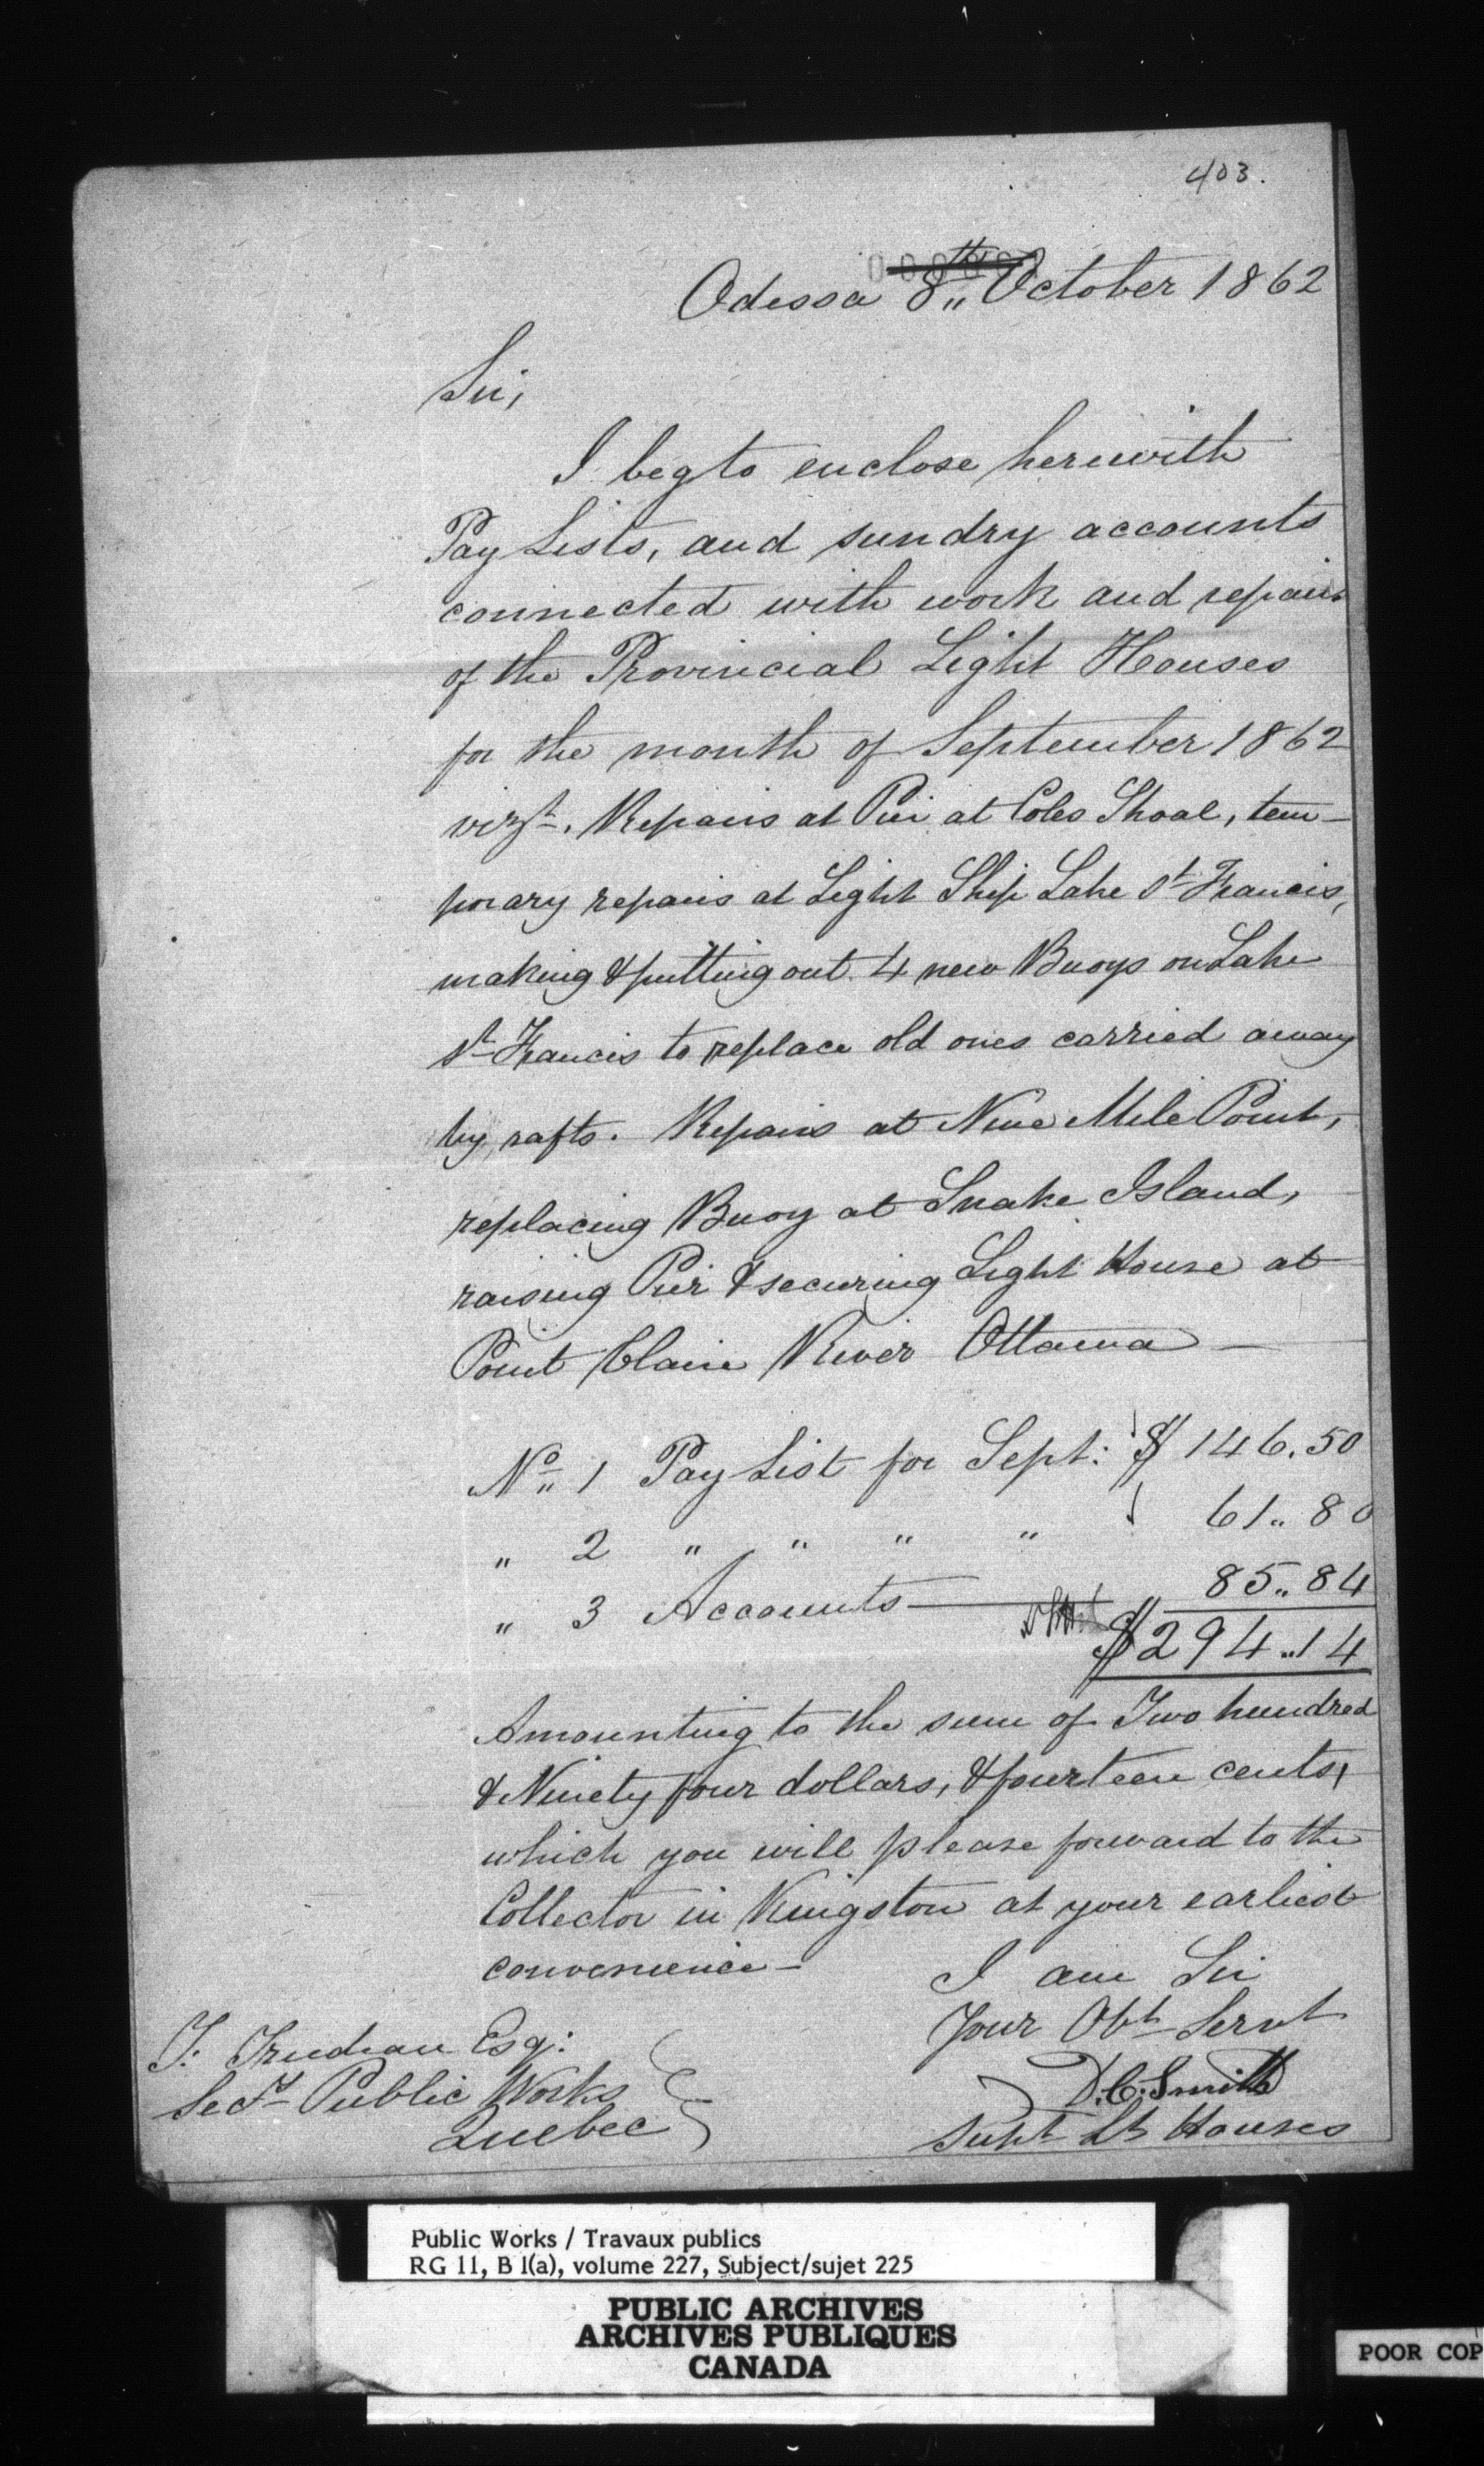 403.
Odessa 8th October 1862
Sir,
I beg to enclose herewith
Pay Lists, and sundry accounts
connected with work and repairs
of the Provincial Light Houses
for the month of September 1862
vizt. Repairs at Pier at Coles Shoal, tem-
porary repairs at Light Ship Lake St Francis,
making & putting out 4 new Buoys on Lake
St Francis to replace old ones carried away
by rafts. Repairs at Nine Mile Point,
replacing Buoy at Snake Island,
raising Pier & securing Light House at
Point Claire River Ottawa —
No 1 Pay List for Sept: $ 146.50
" 2 " " " " 61.. 80
" 3 Accounts — 85.. 84
$ 294..14
Amounting to the sum of Two hundred
& Ninety four dollars, & fourteen cents,
which you will please forward to the
Collector in Kingston at your earliest
convenience —
I am Sir
Your Obt Servt
D.C. Smith
Supt Lt Houses
T. Trudeau Esq:
Secy Public Works
Quebec
Public Works / Travaux publics
RG 11, B 1(a), volume 227, Subject/sujet 225
PUBLIC ARCHIVES
ARCHIVES PUBLIQUES
CANADA
POOR COP